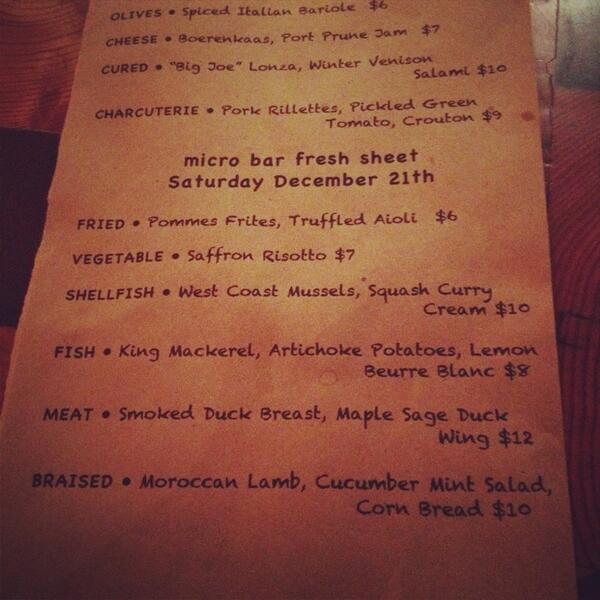 OLIVES • Spiced Italian Bariole $6
CHEESE • Boerenkaas, Port Prune Jam $7
CURED • "Big Joe" Lonza, Winter Venison
Salami $10
CHARCUTERIE • Pork Rillettes, Pickled Green
Tomato, Crouton $9
micro bar fresh sheet
Saturday December 21th
FRIED • Pommes Frites, Truffled Aioli $6
VEGETABLE • Saffron Risotto $7
SHELLFISH • West Coast Mussels, Squash Curry
Cream $10
FISH • King Mackerel, Artichoke Potatoes, Lemon
Beurre Blanc $8
MEAT • Smoked Duck Breast, Maple Sage Duck
Wing $12
BRAISED • Moroccan Lamb, Cucumber Mint Salad,
Corn Bread $10